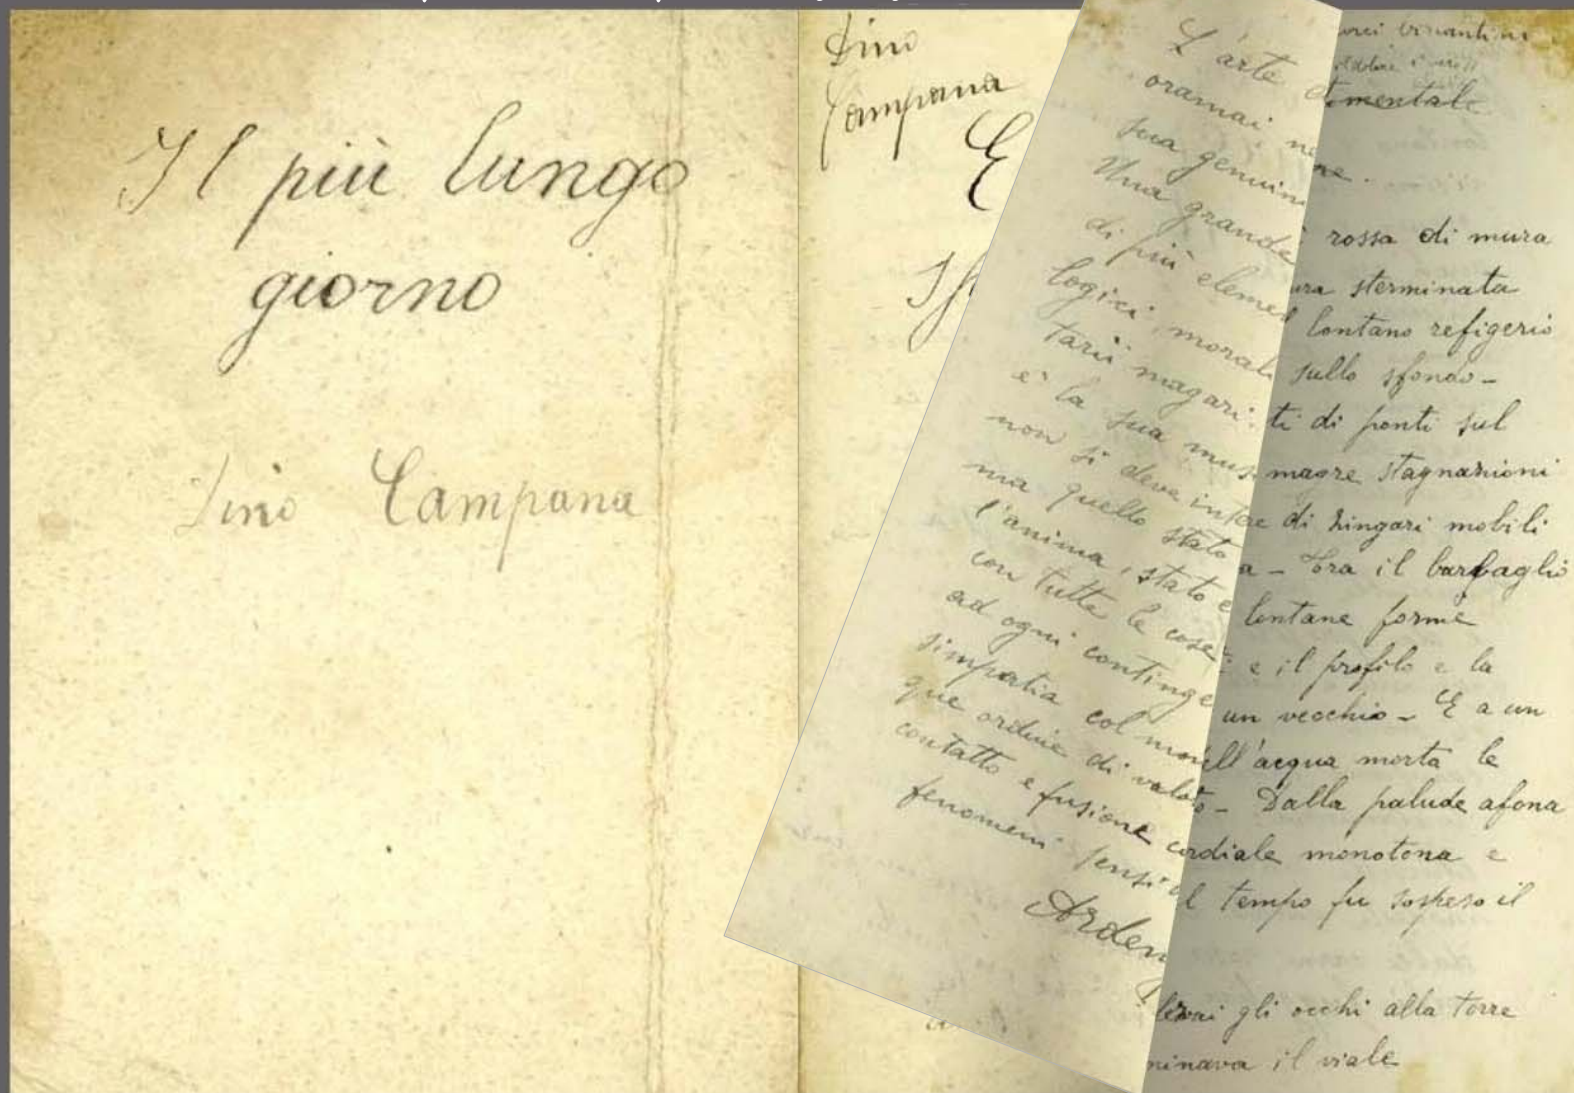 Il più lungo
giorno
Dino Campana
Dino
Campana
E
L'arte
oramai ne
sua genuin
Una grande
di più elemen
logici, morali
tarii magari:
è la sua mus
non si deve inte
ma quello stato
l'anima, stato e
con tutte le cose
ad ogni continge
simpatia col mon
que ordine di valo
contatto e fusione
fenomeni sensi
Arden
rossa di mura
sterminata
lontano refigerio
sullo sfondo-
ti di ponti sul
magre stagnazioni
di zingari mobili
a - Era il barbaglio
lontane forme
e il profilo e la
un vecchio - E a un
ell'acqua morta le
o - Dalla palude afona
cordiale monotona e
il tempo fu sospeso il
levai gli occhi alla torre
minava il viale